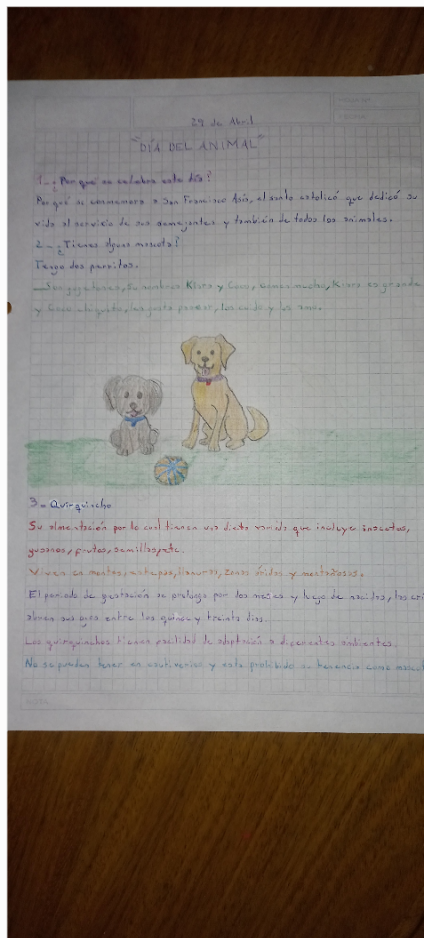 29 de Abril
"DÍA DEL ANIMAL"
1_ ¿Por qué se celebra este día?
Por qué se conmemora a San Francisco Asís, el santo católico que dedicó su
vida al servicio de sus semejantes y también de todos los animales.
2_ ¿Tienes alguna mascota?
Tengo dos perritos.
Son juguetones, su nombres Kiara y Coco, comen mucho, Kiara es grande
y Coco, les gusta pasear, los cuido y los amo.
3_ Quirquincho
Su alimentación por lo cual tienen una dieta variada que incluye insectos,
gusanos, frutos, semillas, etc.
Viven en montes, estepas, llanuras, zonas áridas y montañosas.
El período de gestación se prolonga por dos meses y luego de nacidas, las crí
abren sus ojos entre los quince y treinta días.
Los quirquinchos tienen facilidad de adaptación a diferentes ambientes.
No se pueden tener en cautiverio y está prohibido su tenencia como mascot